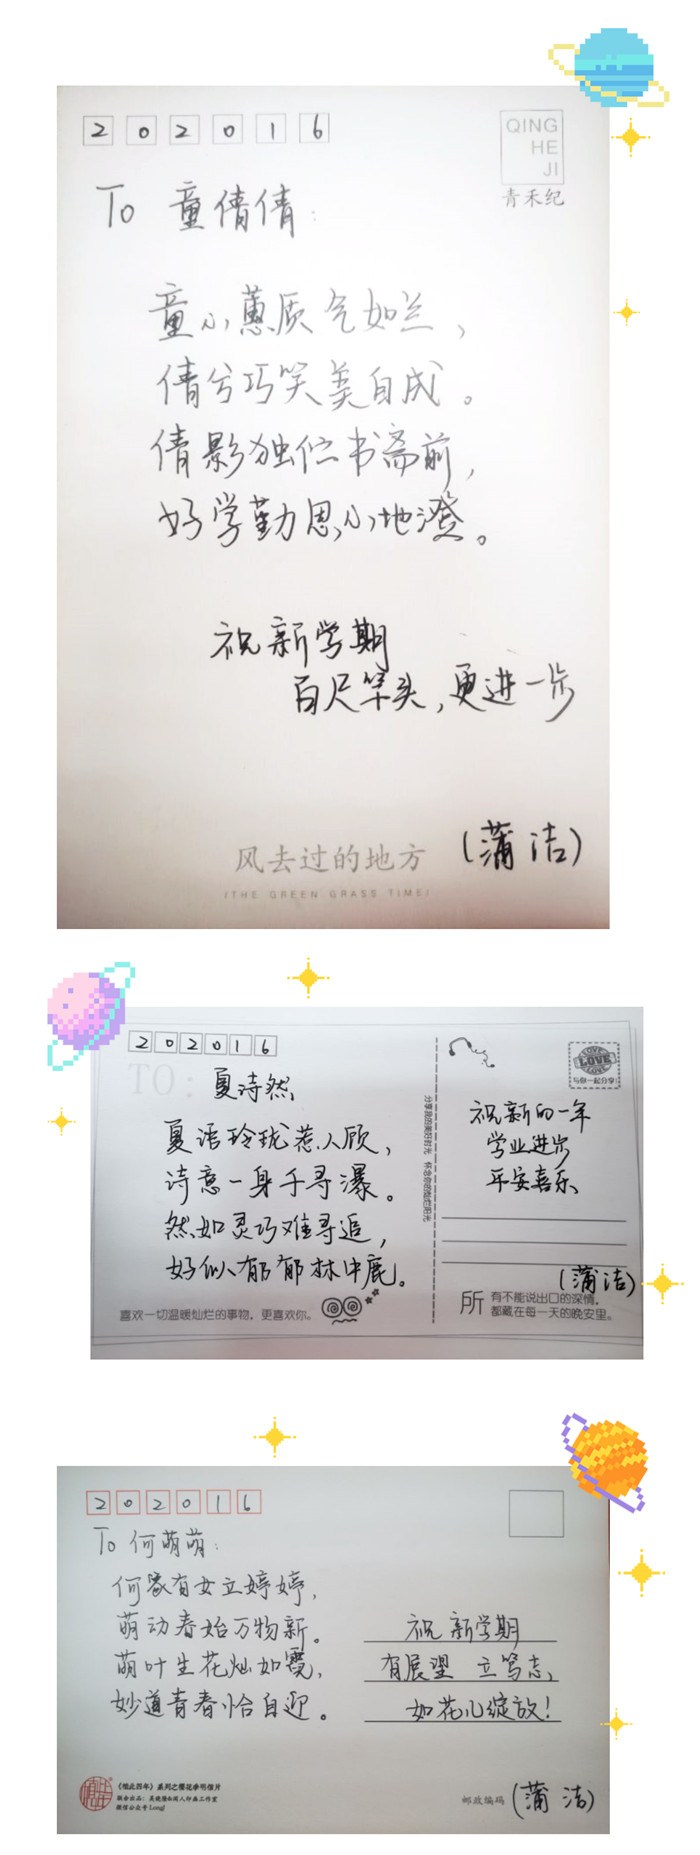 2 0 2 0 1 6
QING
HE
JI
青禾纪
To 童倩倩:
童心蕙质气如兰，
倩兮巧笑美自成。
倩影独位书斋前，
好学勤思心地澄。
祝新学期
百尺竿头，更进一步
风去过的地方
/THE GREEN GRASS TIME/
(蒲洁)
2 0 2 0 1 6
TO: 夏诗然
夏语玲珑惹人顾，
诗意一身千寻瀑。
然如灵巧难寻追，
好似郁郁林中鹿。
喜欢一切温暖灿烂的事物，更喜欢你。
分享我的美好时光 怀念你的灿烂阳光
LOVE
与你一起分享
祝新的一年
学业进步
平安喜乐
(蒲洁)
所有不能说出口的深情，
都藏在每一天的晚安里。
2 0 2 0 1 6
To 何萌萌:
何家有女立婷婷，
萌动春始万物新。
萌叶生花灿如霓，
妙道青春恰自迎。
祝 新学期
有展望 立笃志，
如花儿绽放！
邮政编码
(蒲洁)